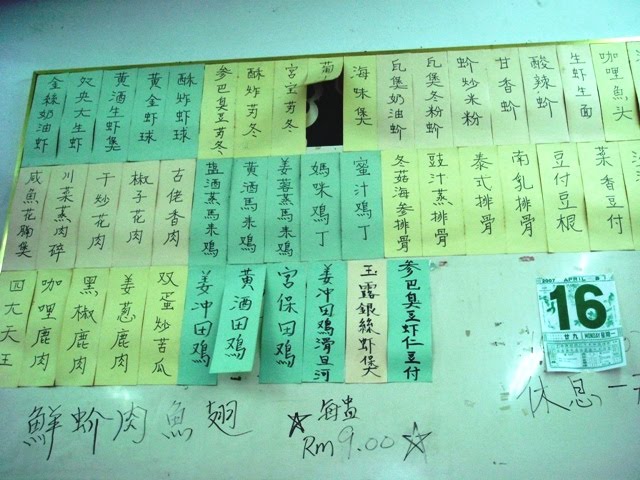 金絲奶油虾
奴央大生虾
黄酒生虾煲
黄金虾球
酥炸虾球
参巴臭豆芀冬
酥炸芀冬
宫宝芀冬
葡
海味煲
瓦煲奶油蚧
瓦煲冬粉蚧
蚧炒米粉
甘香蚧
酸辣蚧
生虾生面
咖哩魚头
咸魚花腩煲
川菜蒸肉碎
干炒花肉
椒子花肉
古佬香肉
盐酒蒸馬来鸡
黄酒馬来鸡
姜蓉蒸馬来鸡
媽咪鸡丁
蜜汁鸡丁
冬菇海参排骨
豉汁蒸排骨
泰式排骨
南乳排骨
豆付豆根
菜香豆付
四大天王
咖哩鹿肉
黑椒鹿肉
姜葱鹿肉
双蛋炒苦瓜
姜冲田鸡
黄酒田鸡
宫保田鸡
姜冲田鸡滑旦河
玉露銀絲虾煲
参巴臭豆虾仁豆付
2007 APRIL
16
廿九 MONDAY
鮮蚧肉魚翅
每盅
Rm 9.00
休息一